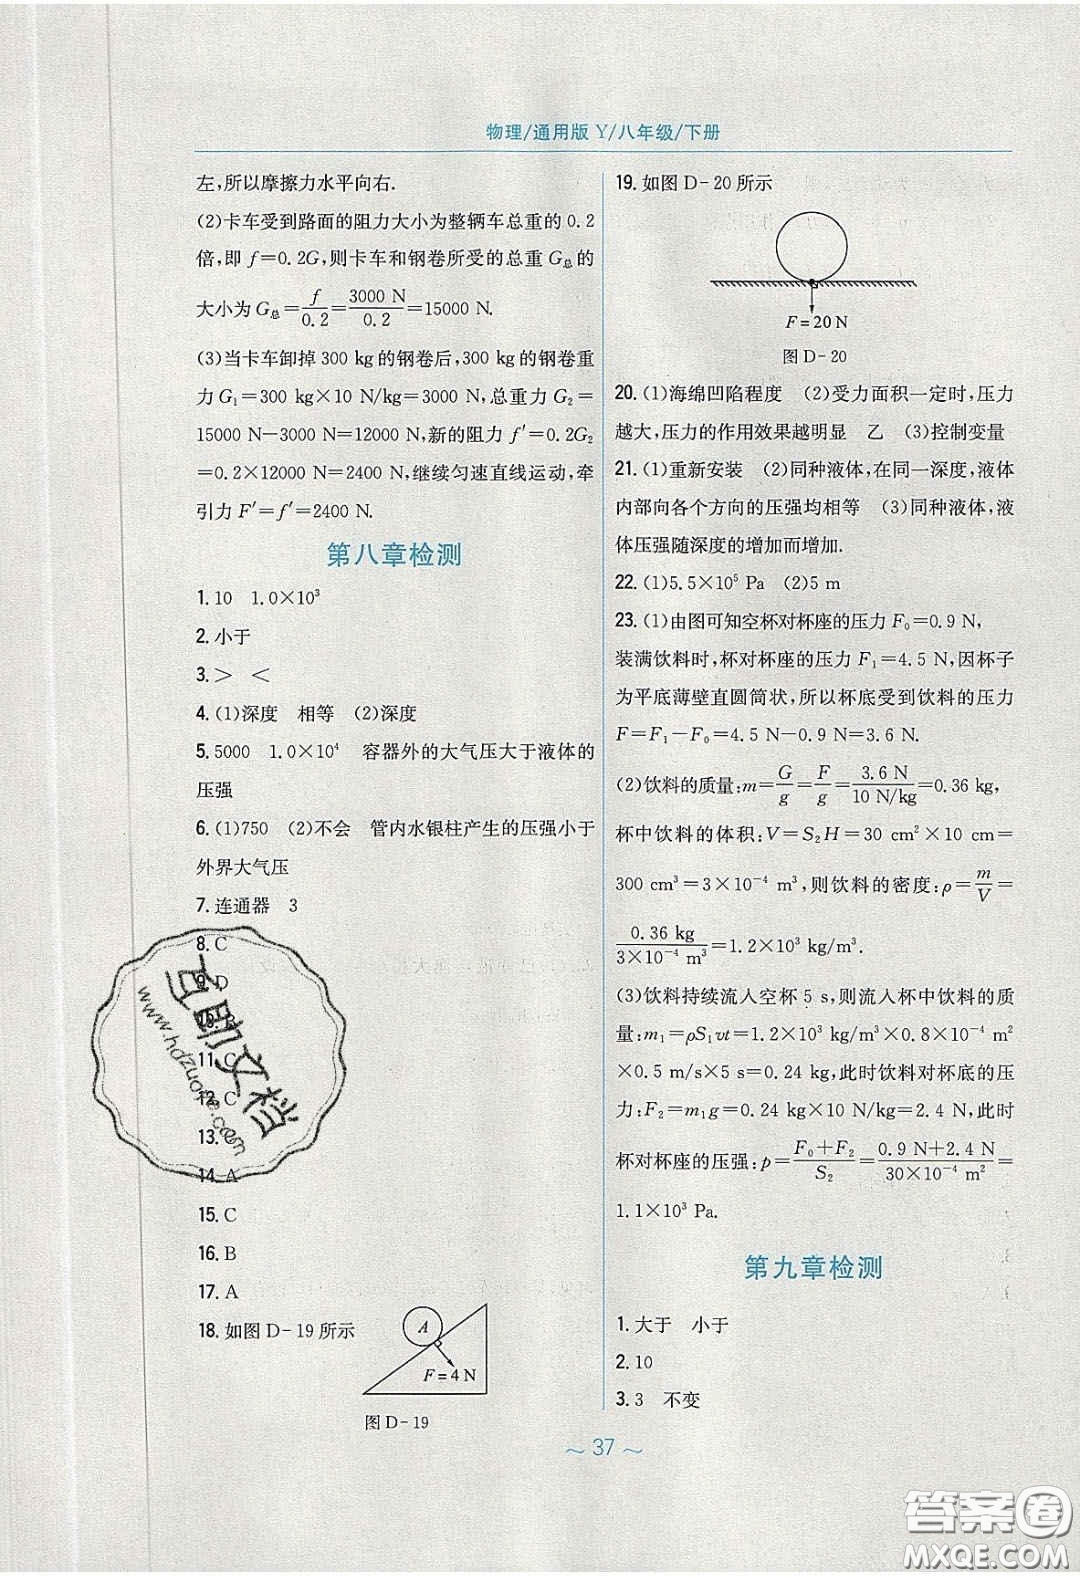 物理/通用版 Y/八年级/下册
左,所以摩擦力水平向右.
(2)卡车受到路面的阻力大小为整辆车总重的 0.2
倍,即 f=0.2G,则卡车和钢卷所受的总重 G总的
大小为 G总=f/0.2=3000 N/0.2=15000 N.
(3)当卡车卸掉 300 kg 的钢卷后,300 kg 的钢卷重
力 G₁=300 kg×10 N/kg=3000 N,总重力 G₂=
15000 N-3000 N=12000 N,新的阻力 f′=0.2G₂
=0.2×12000 N=2400 N,继续匀速直线运动,牵
引力 F′=f′=2400 N.
第八章检测
1. 10 1.0×10³
2. 小于
3. > <
4. (1)深度 相等 (2)深度
5. 5000 1.0×10⁴ 容器外的大气压大于液体的
压强
6. (1)750 (2)不会 管内水银柱产生的压强小于
外界大气压
7. 连通器 3
8. C
9. D
10. B
11. C
12. C
13.
14. A
15. C
16. B
17. A
18. 如图 D-19 所示
A
F=4 N
图 D-19
19. 如图 D-20 所示
F=20 N
图 D-20
20. (1)海绵凹陷程度 (2)受力面积一定时,压力
越大,压力的作用效果越明显 乙 (3)控制变量
21. (1)重新安装 (2)同种液体,在同一深度,液体
内部向各个方向的压强均相等 (3)同种液体,液
体压强随深度的增加而增加.
22. (1)5.5×10⁵ Pa (2)5 m
23. (1)由图可知空杯对杯座的压力 F₀=0.9 N,
装满饮料时,杯对杯座的压力 F₁=4.5 N,因杯子
为平底薄壁直圆筒状,所以杯底受到饮料的压力
F=F₁-F₀=4.5 N-0.9 N=3.6 N.
(2)饮料的质量:m=G/g=F/g=3.6 N/10 N/kg=0.36 kg,
杯中饮料的体积:V=S₂H=30 cm²×10 cm=
300 cm³=3×10⁻⁴ m³,则饮料的密度:ρ=m/V=
0.36 kg/3×10⁻⁴ m³=1.2×10³ kg/m³.
(3)饮料持续流入空杯 5 s,则流入杯中饮料的质
量:m₁=ρS₁vt=1.2×10³ kg/m³×0.8×10⁻⁴ m²
×0.5 m/s×5 s=0.24 kg,此时饮料对杯底的压
力:F₂=m₁g=0.24 kg×10 N/kg=2.4 N,此时
杯对杯座的压强:p=F₀+F₂/S₂=0.9 N+2.4 N/30×10⁻⁴ m²=
1.1×10³ Pa.
第九章检测
1. 大于 小于
2. 10
3. 3 不变
～ 37 ～
互助文档
www.hdzuoye.com
答案卷
MXQE.COM